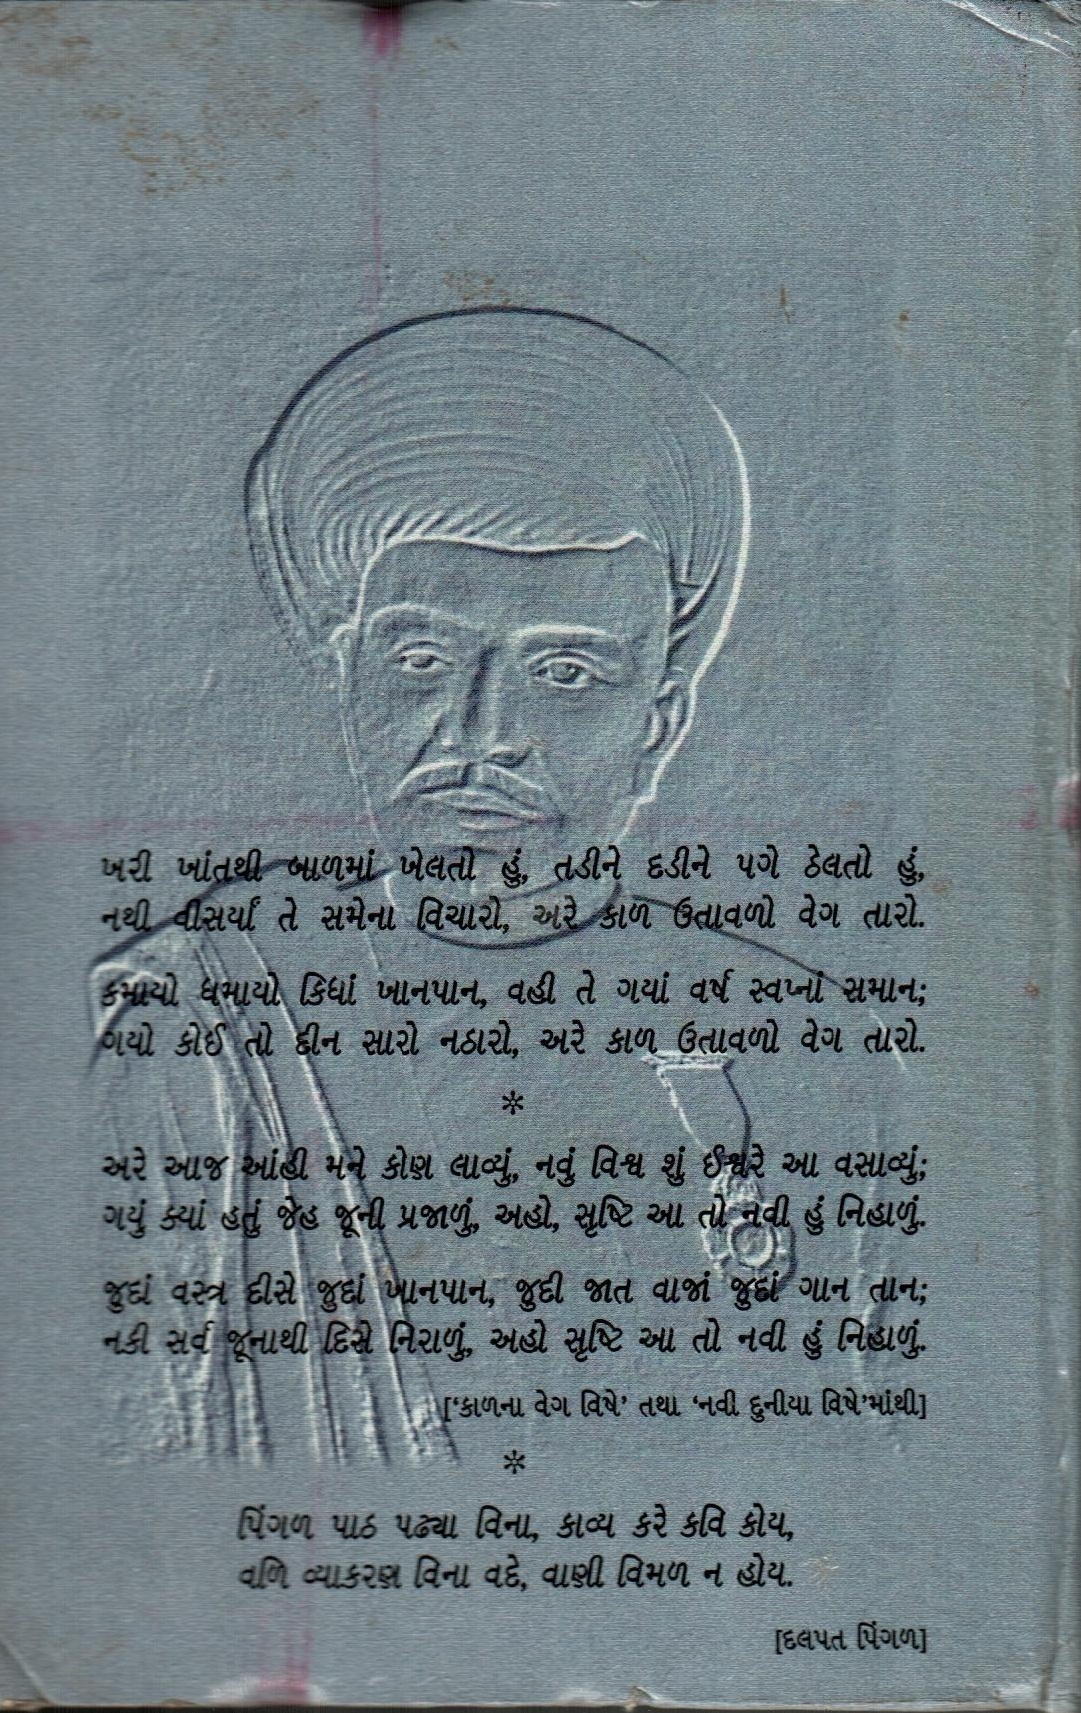 ખરી ખાંતથી બાળમાં ખેલતો હું, તડીને દડીને પગે ઠેલતો હું,
નથી વીસર્યાં તે સમેના વિચારો, અરે કાળ ઉતાવળો વેગ તારો.
કમાયો ધમાયો કિધાં ખાનપાન, વહી તે ગયાં વર્ષ સ્વપ્નાં સમાન;
ગયો કોઈ તો દ્દીન સારો નઠારો, અરે કાળ ઉતાવળો વેગ તારો.
*
અરે આજ આંહી મને કોણ લાવ્યું, નવું વિશ્વ શું ઈશ્વરે આ વસાવ્યું;
ગયું ક્યાં હતું જેહ જૂની પ્રજાળું, અહો, સૃષ્ટિ આ તો નવી હું નિહાળું.
જુદાં વસ્ત્ર દીસે જુદાં ખાનપાન, જુદી જાત વાજાં જુદાં ગાન તાન;
નકી સર્વ જૂનાથી દિસે નિરાળું, અહો સૃષ્ટિ આ તો નવી હું નિહાળું.
[‘કાળના વેગ વિષે’ તથા ‘નવી દુનીયા વિષે’માંથી]
*
પિંગળ પાઠ પઢ્યા વિના, કાવ્ય કરે કવિ કોય,
વળિ વ્યાકરણ વિના વદે, વાણી વિમળ ન હોય.
[દલપત પિંગળ]